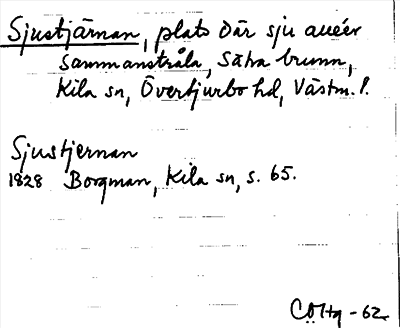 Sjustjärnan, plats där sju alléer
sammanstråla, Sätra brunn,
Kila sn, Övertjurbo hd, Västm. l.
Sjustjernan
1828 Borgman, Kila sn, s. 65.